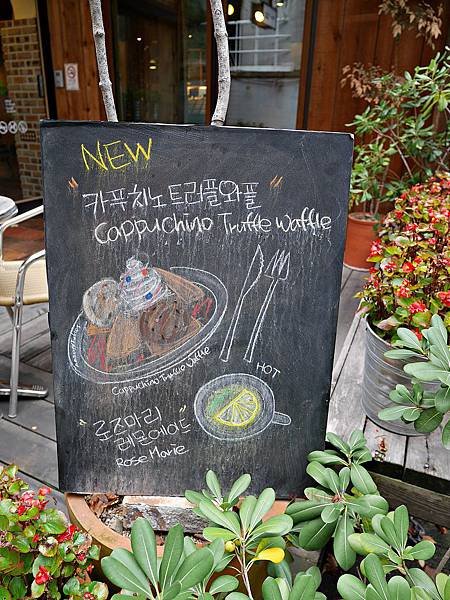 NEW
"카푸치노트러플와플"
Cappuchino Truffle Waffle
Cappuchino Truffle Waffle
HOT
"로즈마리
레몬에이드"
Rose Marie